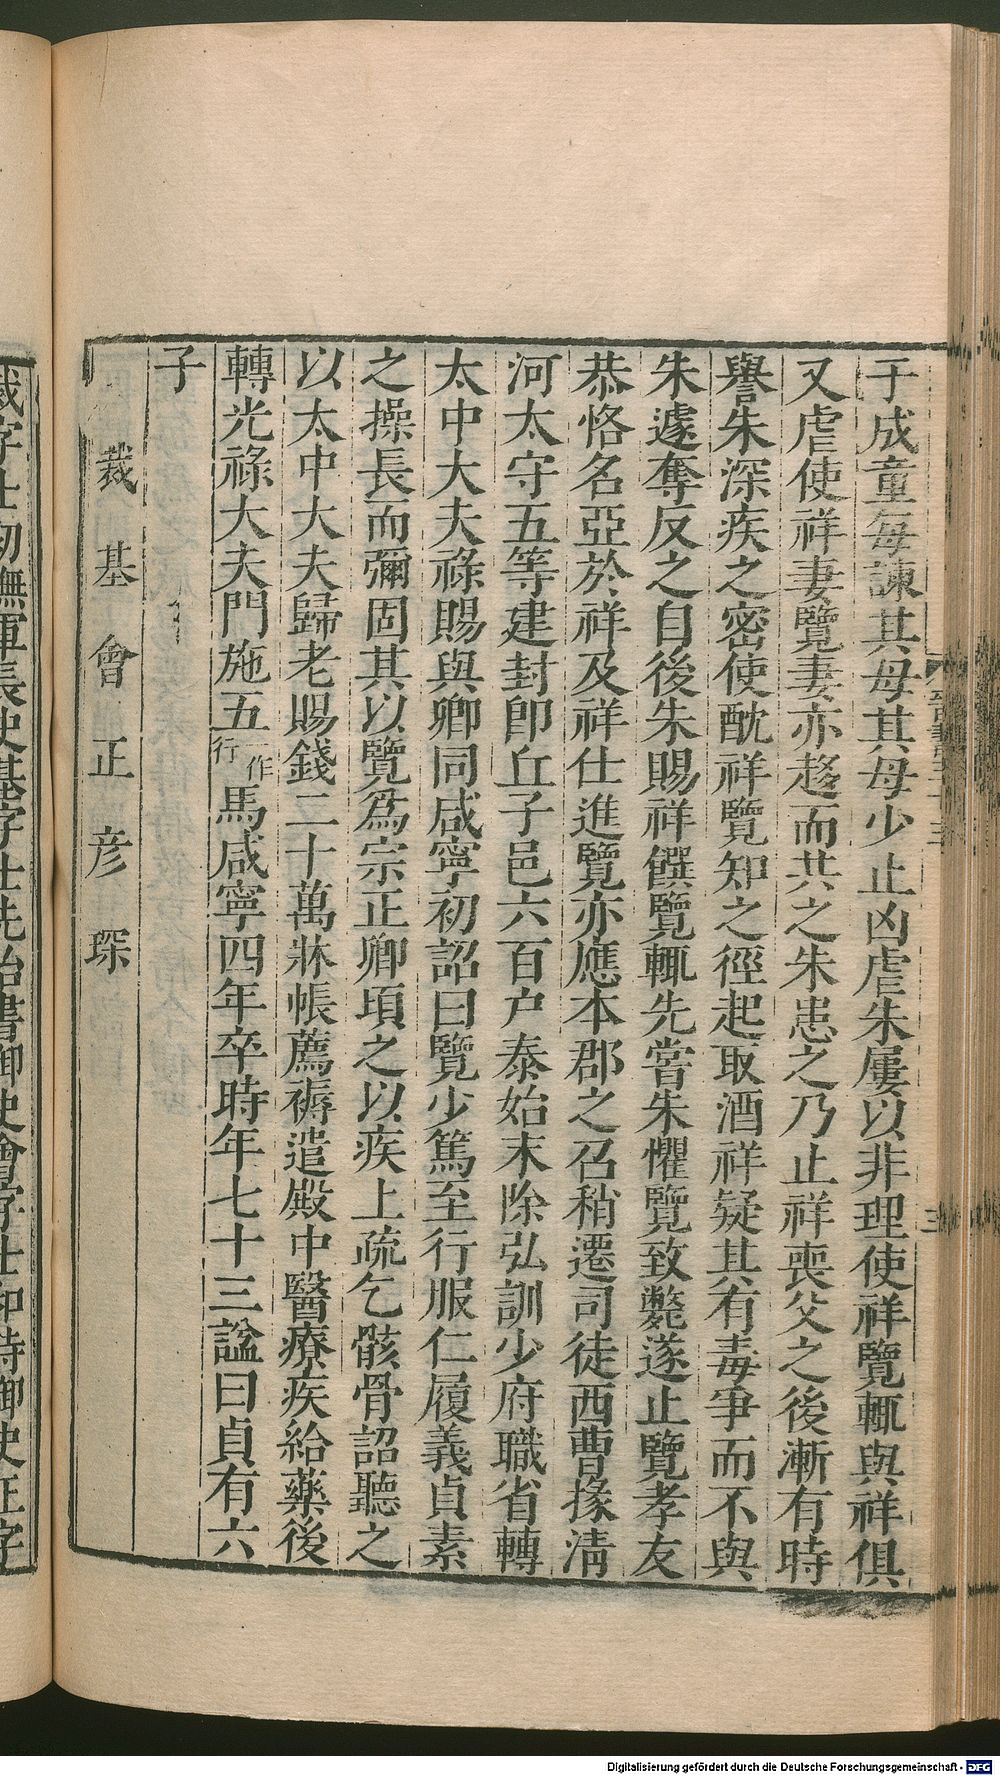 于成童每諫其母其母少止凶虐朱屢以非理使祥覽輒與祥俱
又虐使祥妻覽妻亦趍而共之朱患之乃止祥喪父之後漸有時
譽朱深疾之密使酖祥覽知之徑起取酒祥疑其有毒爭而不與
朱遽奪反之自後朱賜祥饌覽輒先嘗朱懼覽致斃遂止覽孝友
恭恪名亞於祥及祥仕進覽亦應本郡之召稍遷司徒西曹掾淸
河太守五等建封卽丘子邑六百户泰始末除弘訓少府職省轉
太中大夫祿賜與卿同咸寧初詔曰覽少篤至行服仁履義貞素
之操長而彌固其以覽爲宗正卿頃之以疾上疏乞骸骨詔聽之
以太中大夫歸老賜錢二十萬牀帳薦褥遣殿中醫療疾給藥後
轉光祿大夫門施五一作行馬咸寧四年卒時年七十三諡曰貞有六
子
裁基會正彦琛
裁字士初撫軍長史基字士先治書御史會字士和侍御史正字
Digitalisierung gefördert durch die Deutsche Forschungsgemeinschaft - DFG